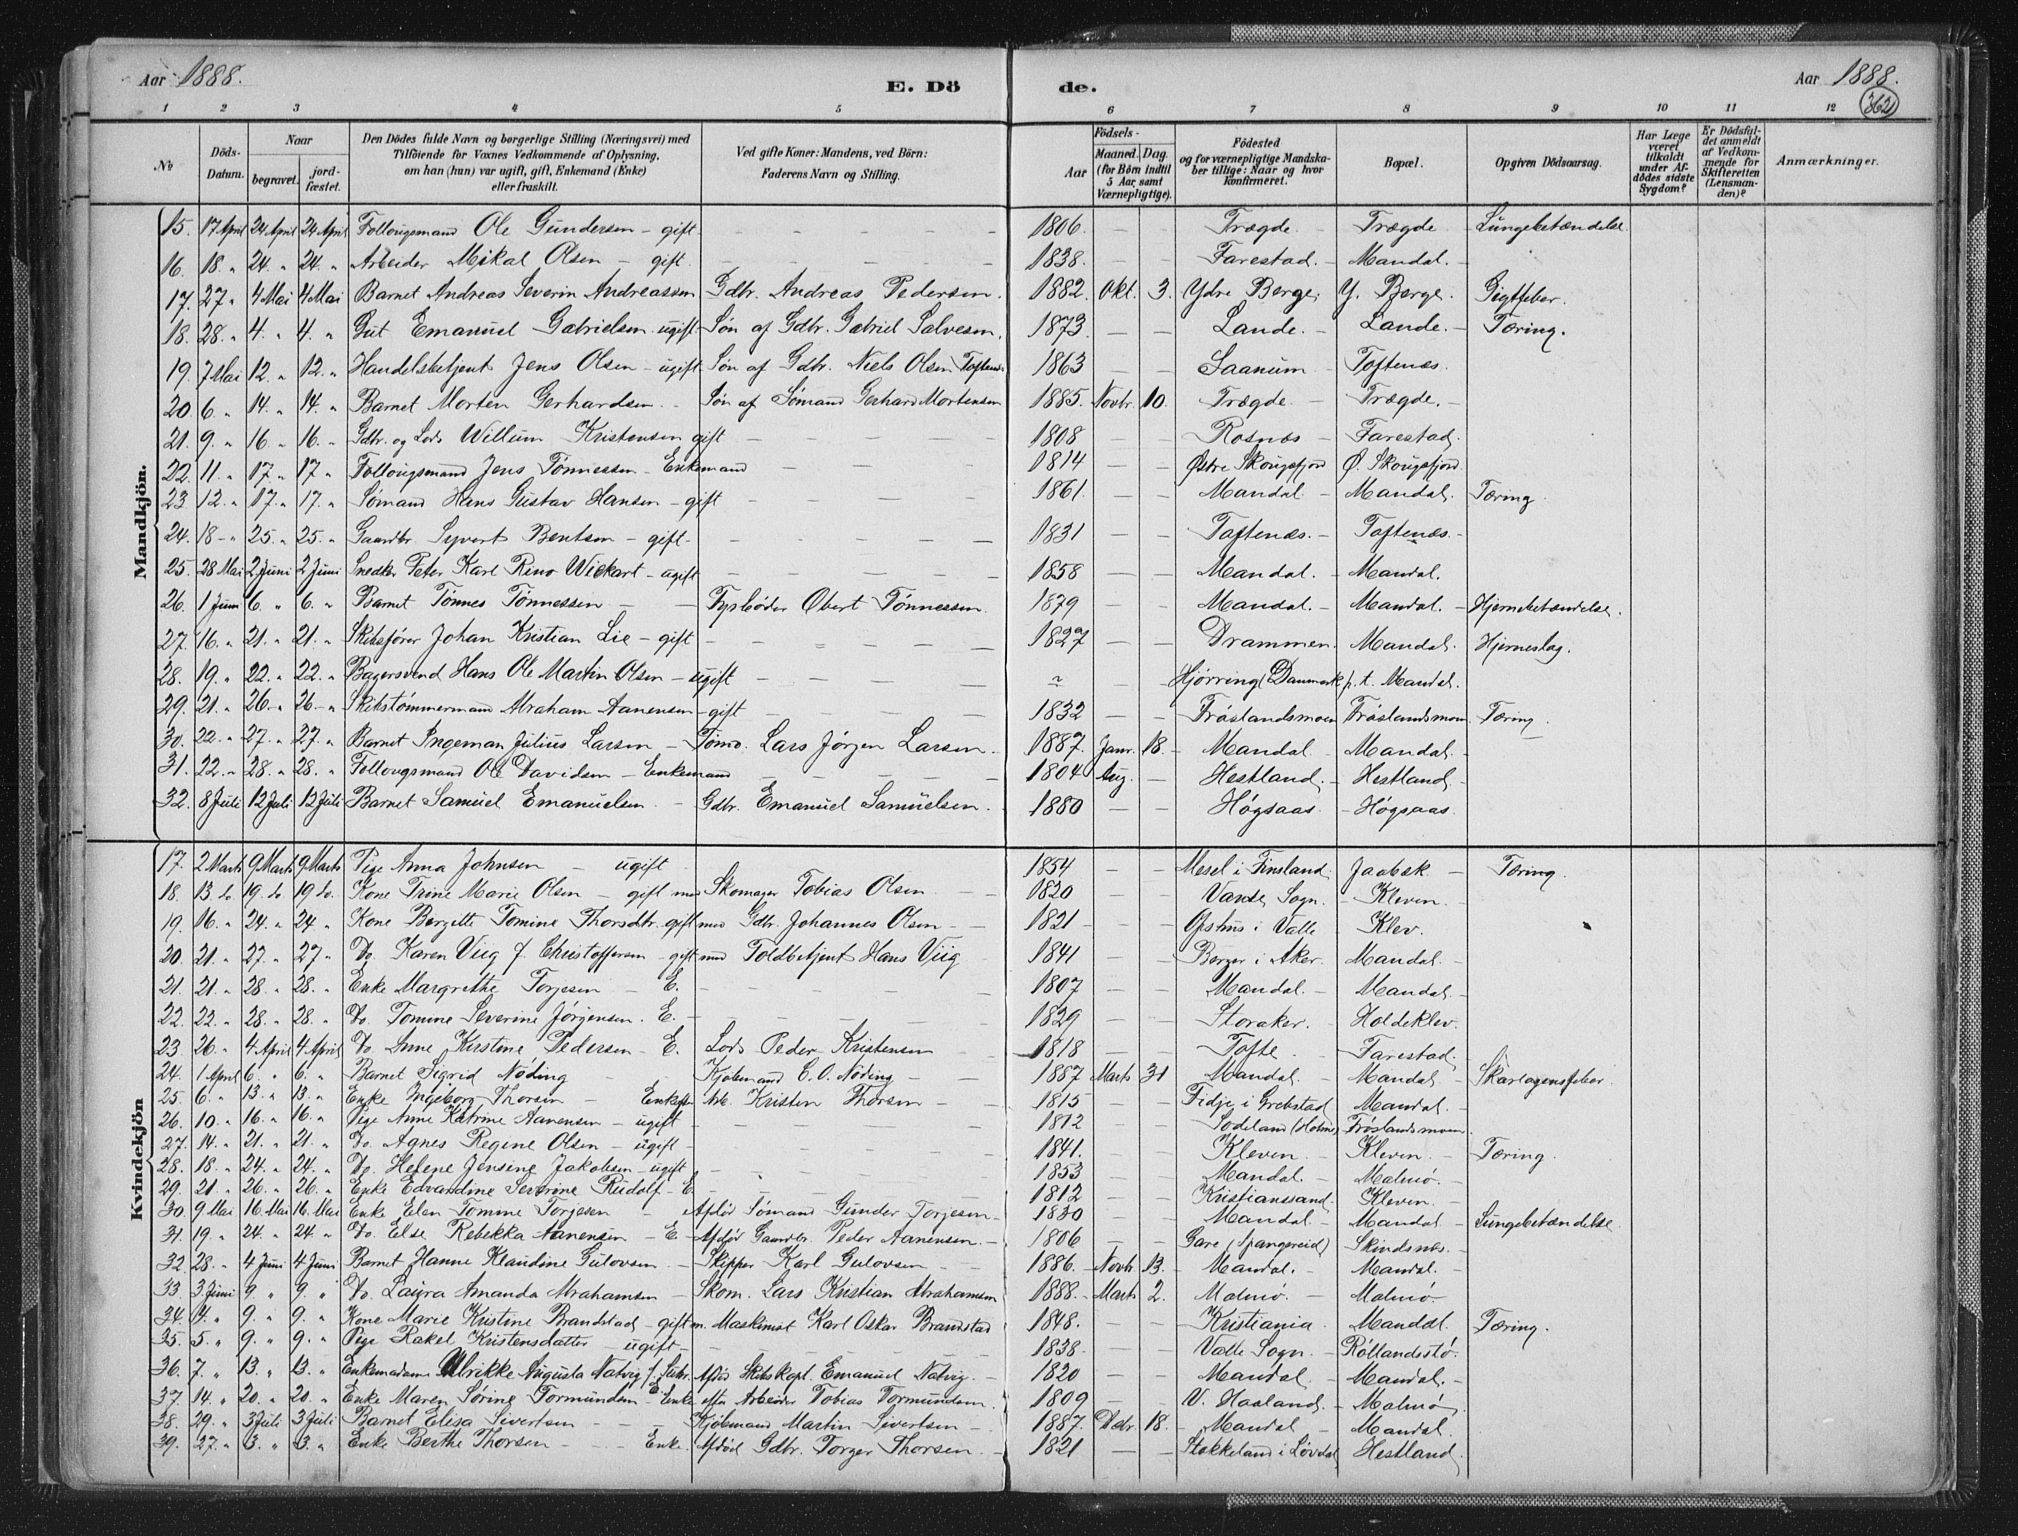 Aar 1888.
E. Dö
de.
Aar 1888.
362
1 2 3 4 5 6 7 8 9 10 11 12
No
Döds-Datum.
Naar
begravet.
jord-fæstet.
Den Dödes fulde Navn og borgerlige Stilling (Næringsvei) med
Tilföiende for Voxnes Vedkommende af Oplysning,
om han (hun) var ugift, gift, Enkemand (Enke)
eller fraskilt.
Ved gifte Koner: Mandens, ved Börn:
Faderens Navn og Stilling.
Födsels-
Aar
Maaned. Dag.
(for Børn indtil
5 Aar samt
Værnepligtige).
Födested
og for værnepligtige Mandska-
ber tillige: Naar og hvor
konfirmeret.
Bopæl.
Opgiven Dödsaarsag.
Har Læge
været
tilkaldt
under Af-
dödes sidste
Sygdom?
Er Dödsfal-
det anmeldt
af Vedkom-
mende for
Skifteretten
(Lensman-
den)?
Anmærkninger.
Mandkjön.
15. 17 April 24 April 24 April Follougsmand Ole Gundersen – gift – 1806 – – Trægde – Trægde – Lungebetændelse
16. 18. " 24. " 24. " Arbeider Mikal Olsen – gift. – 1838. – – Farestad. – Mandal. –
17. 27 " 4 Mai 4 Mai Barnet Andreas Severin Andreassen Gdbr. Andreas Pedersen. 1882. Okt. 3. Ydre Berge, Y. Berge. Gigtfeber.
18. 28. " 4. " 4. " Gut Emanuel Gabrielsen ugift Søn af Gdbr. Gabriel Salvesen, 1873 – – Lande. – Lande. – Tæring.
19. 7 Mai 12. " 12. " Handelsbetjent Jens Olsen – ugift Søn af Gdbr. Niels Olsen Toftenæs 1863 – – Saanum – Toftenæs.
20. 6 " 14. " 14. " Barnet Morten Gerhardsen – Søn af Sømand Gerhard Mortensen 1885. Novbr. 10. Trægde – Trægde. –
21. 9. " 16 " 16. " Gdbr. og Lods Willum Kristensen gift – 1808 – – Rosnæs – Farestad.
22. 11. " 17. " 17 " Follougsmand Jens Tønnessen – Enkemand – 1814 – – Østre Skougsfjord Ø. Skougsfjord
23 12. " 17. " 17. " Sømand Hans Gustav Hansen – gift 1861. – – Mandal. – Mandal. Tæring.
24. 18 – " 25. " 25. " Gaardbr. Syvert Bentsen – gift. – 1831 – – Toftenæs. – Toftenæs. –
25. 28 Mai 2 Juni 2 Juni Snedker Peter Karl Rino Wickart – ugift – 1858 – – Mandal. – Mandal.
26. 1 Juni 6. " 6. " Barnet Tønnes Tønnessen – – Fyrbøder Obert Tønnessen. 1879 – – Mandal. – Mandal. – Hjernebetændelse.
27. 16. " 21. " 21. " Skibsfører Johan Kristian Lie – gift – 1827 – – Drammen. Mandal. Hjerneslag.
28. 19. " 22. " 22. " Bagersvend Hans Ole Martin Olsen – ugift – Hjørring, Danmark p. t. Mandal.
29. 21. " 26 " 26 – " Skibstømmermand Abraham Aanensen – gift – 1832 – – Frøslandsmoen Frøslandsmoen Tæring.
30. 22. " 27. " 27. " Barnet Ingeman Julius Larsen – Tømm. Lars Jørgen Larsen. 1887. Janr. 18. – Mandal – Mandal.
31. 22. " 28. " 28. " Follougsmand Ole Davidsen – Enkemand – 1804 Aug. – Hestland. – Hestland. –
32. 8 Juli 12 Juli 12 Juli Barnet Samuel Emanuelsen – Gdbr. Emanuel Samuelsen. 1880 – – Høgsaas – Høgsaas.
Kvindekjön
17. 2 Marts 9 Marts 9 Marts Pige Anna Johnsen – ugift 1854 – – Mesel i Finsland. Jaabæk – Tæring.
18. 13 do. 19. do 19 do. Kone Trine Marie Olsen – gift med Skomager Tobias Olsen 1820 – – Vanse Sogn. – Kleven. –
19. 16. " 24. " 24. " Kone Bergitte Tomine Thorsdtr. gift med Gdbr. Johannes Olsen – 1821 – – Opshus i Valle – Klev.
20. 21. " 27. " 27 " Do. Karen Viig f. Christoffersen – gift med Toldbetjent Hans Viig 1841 – – Berger i Aker. Mandal. –
21. 21. " 28. " 28. " Enke Margrethe Torjesen – E. – 1807 – – Mandal. – Mandal. –
22. 22. " 28. " 28. " Do. Tomine Severine Jørgensen. E. – 1829 – – Storaker. – Holdeklev.
23 26. " 4 April 4 April Do. Anne Kirstine Pedersen – E. Lods Peder Kristensen 1818 – – Tofte – Farestad.
24. 1 April 6. " 6. " Barnet Sigrid Nøding – Kjøbmand C. O. Nøding – – 1887 Marts 31 Mandal. – Mandal – Skarlagensfeber.
25. 6. " 13. " 13. " Enke Ingeborg Thorsen – Enke efter Arb. Kristen Thorsen – 1815 – – Fidje i Grebstad Mandal. –
26. 10. " 16. " 16. " Pige Anne Katrine Aanensen – ugift – 1812 – – Sodeland (Holme) Frøslandsmoen.
27. 14. " 21. " 21. " Do. Agnes Regine Olsen – ugift – 1841. – – Kleven. – Kleven. – Tæring.
28. 18. " 24. " 24. " Do. Helene Jensine Jakobsen – ugift – 1853 – – Mandal. – Malmø. –
29. 21. " 26. " 26. " Enke Edvardine Severine Rudolf – E. – 1812 – – Kristianssand. Kleven. –
30. 9 Mai 16 Mai 16 Mai Enke Elen Tomine Torjesen – Afdød Sømand Gunder Torjesen – 1830 – – Mandal. – Mandal – Lungebetændelse.
31. 19. " 24. " 24. " Do. Else Rebekka Aanensen – E – Afdød Gaardbr. Peder Aanensen. – 1806 – – Gare (Spangereid) Skindsnæs. –
32. 28. " 4 Juni 4 Juni Barnet Hanne Klaudine Gulovsen – Skipper Karl Gulovsen – – 1886. – Novbr. 13. – Mandal. – Mandal. –
33. 3 Juni 9 " 9. " Do. Laura Amanda Abrahamsen – Skom. Lars Kristian Abrahamsen 1888. – Marts 2. – Malmø. – Malmø. –
34. 4. " 9. " 9. " Kone Marie Kristine Brandstad – gift m. Maskinist Karl Oskar Brandstad 1848. – – Kristiania – Mandal. Tæring.
35. 5. " 9. " 9. " Pige Rakel Kristensdatter – ugift – 1838. – – Valle Sogn. – Röllandsstø. –
36. 7. " 13. " 13. " Enkemadame Ulrikke Augusta Natvig f. Afdød Skibskapt. Emanuel Natvig. – 1820 – – Mandal – Mandal. –
37. 14. " 20. " 20. " Enke Maren Sørine Tormundsen – Enke efter Arbeider Tobias Tormundsen. 1809 – – V. Haaland. – Malmø
38. 29. " 3 Juli 3 Juli Barnet Elisa Sivertsen – – – Kjøbmand Martin Sivertsen – 1887. Decbr. 18. – Mandal – Mandal.
39. 27. " 3. " 3. " Enke Berthe Thorsen – – Enke. Afdød Gdbr. Torger Thorsen – 1821 – – Stokkeland i Løvdal Hestland.